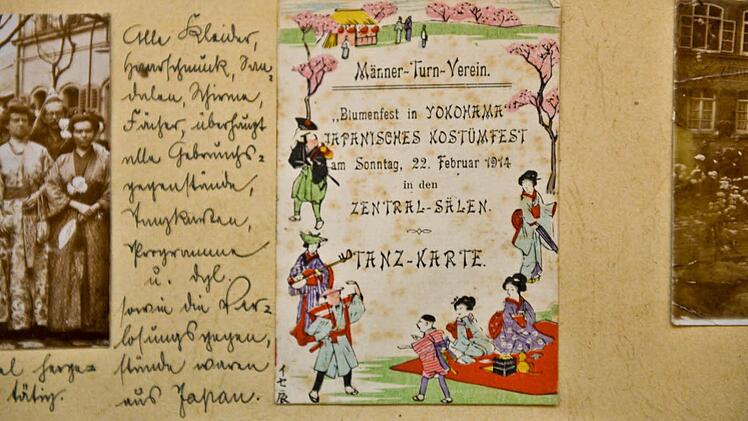 Alle Kleider,
Haarschmuck, San-
dalen, Schirme,
Fächer, überhaupt
alle Gebrauchs-
gegenstände,
Tanzkarten,
Programme
u. dgl.
sowie die Ver-
losungsgegen-
stände waren
aus Japan.
tätig.
Männer-Turn-Verein.
„Blumenfest in YOKOHAMA"
JAPANISCHES KOSTÜMFEST
am Sonntag, 22. Februar 1914
in den
ZENTRAL-SÄLEN.
TANZ-KARTE.
イセ辰